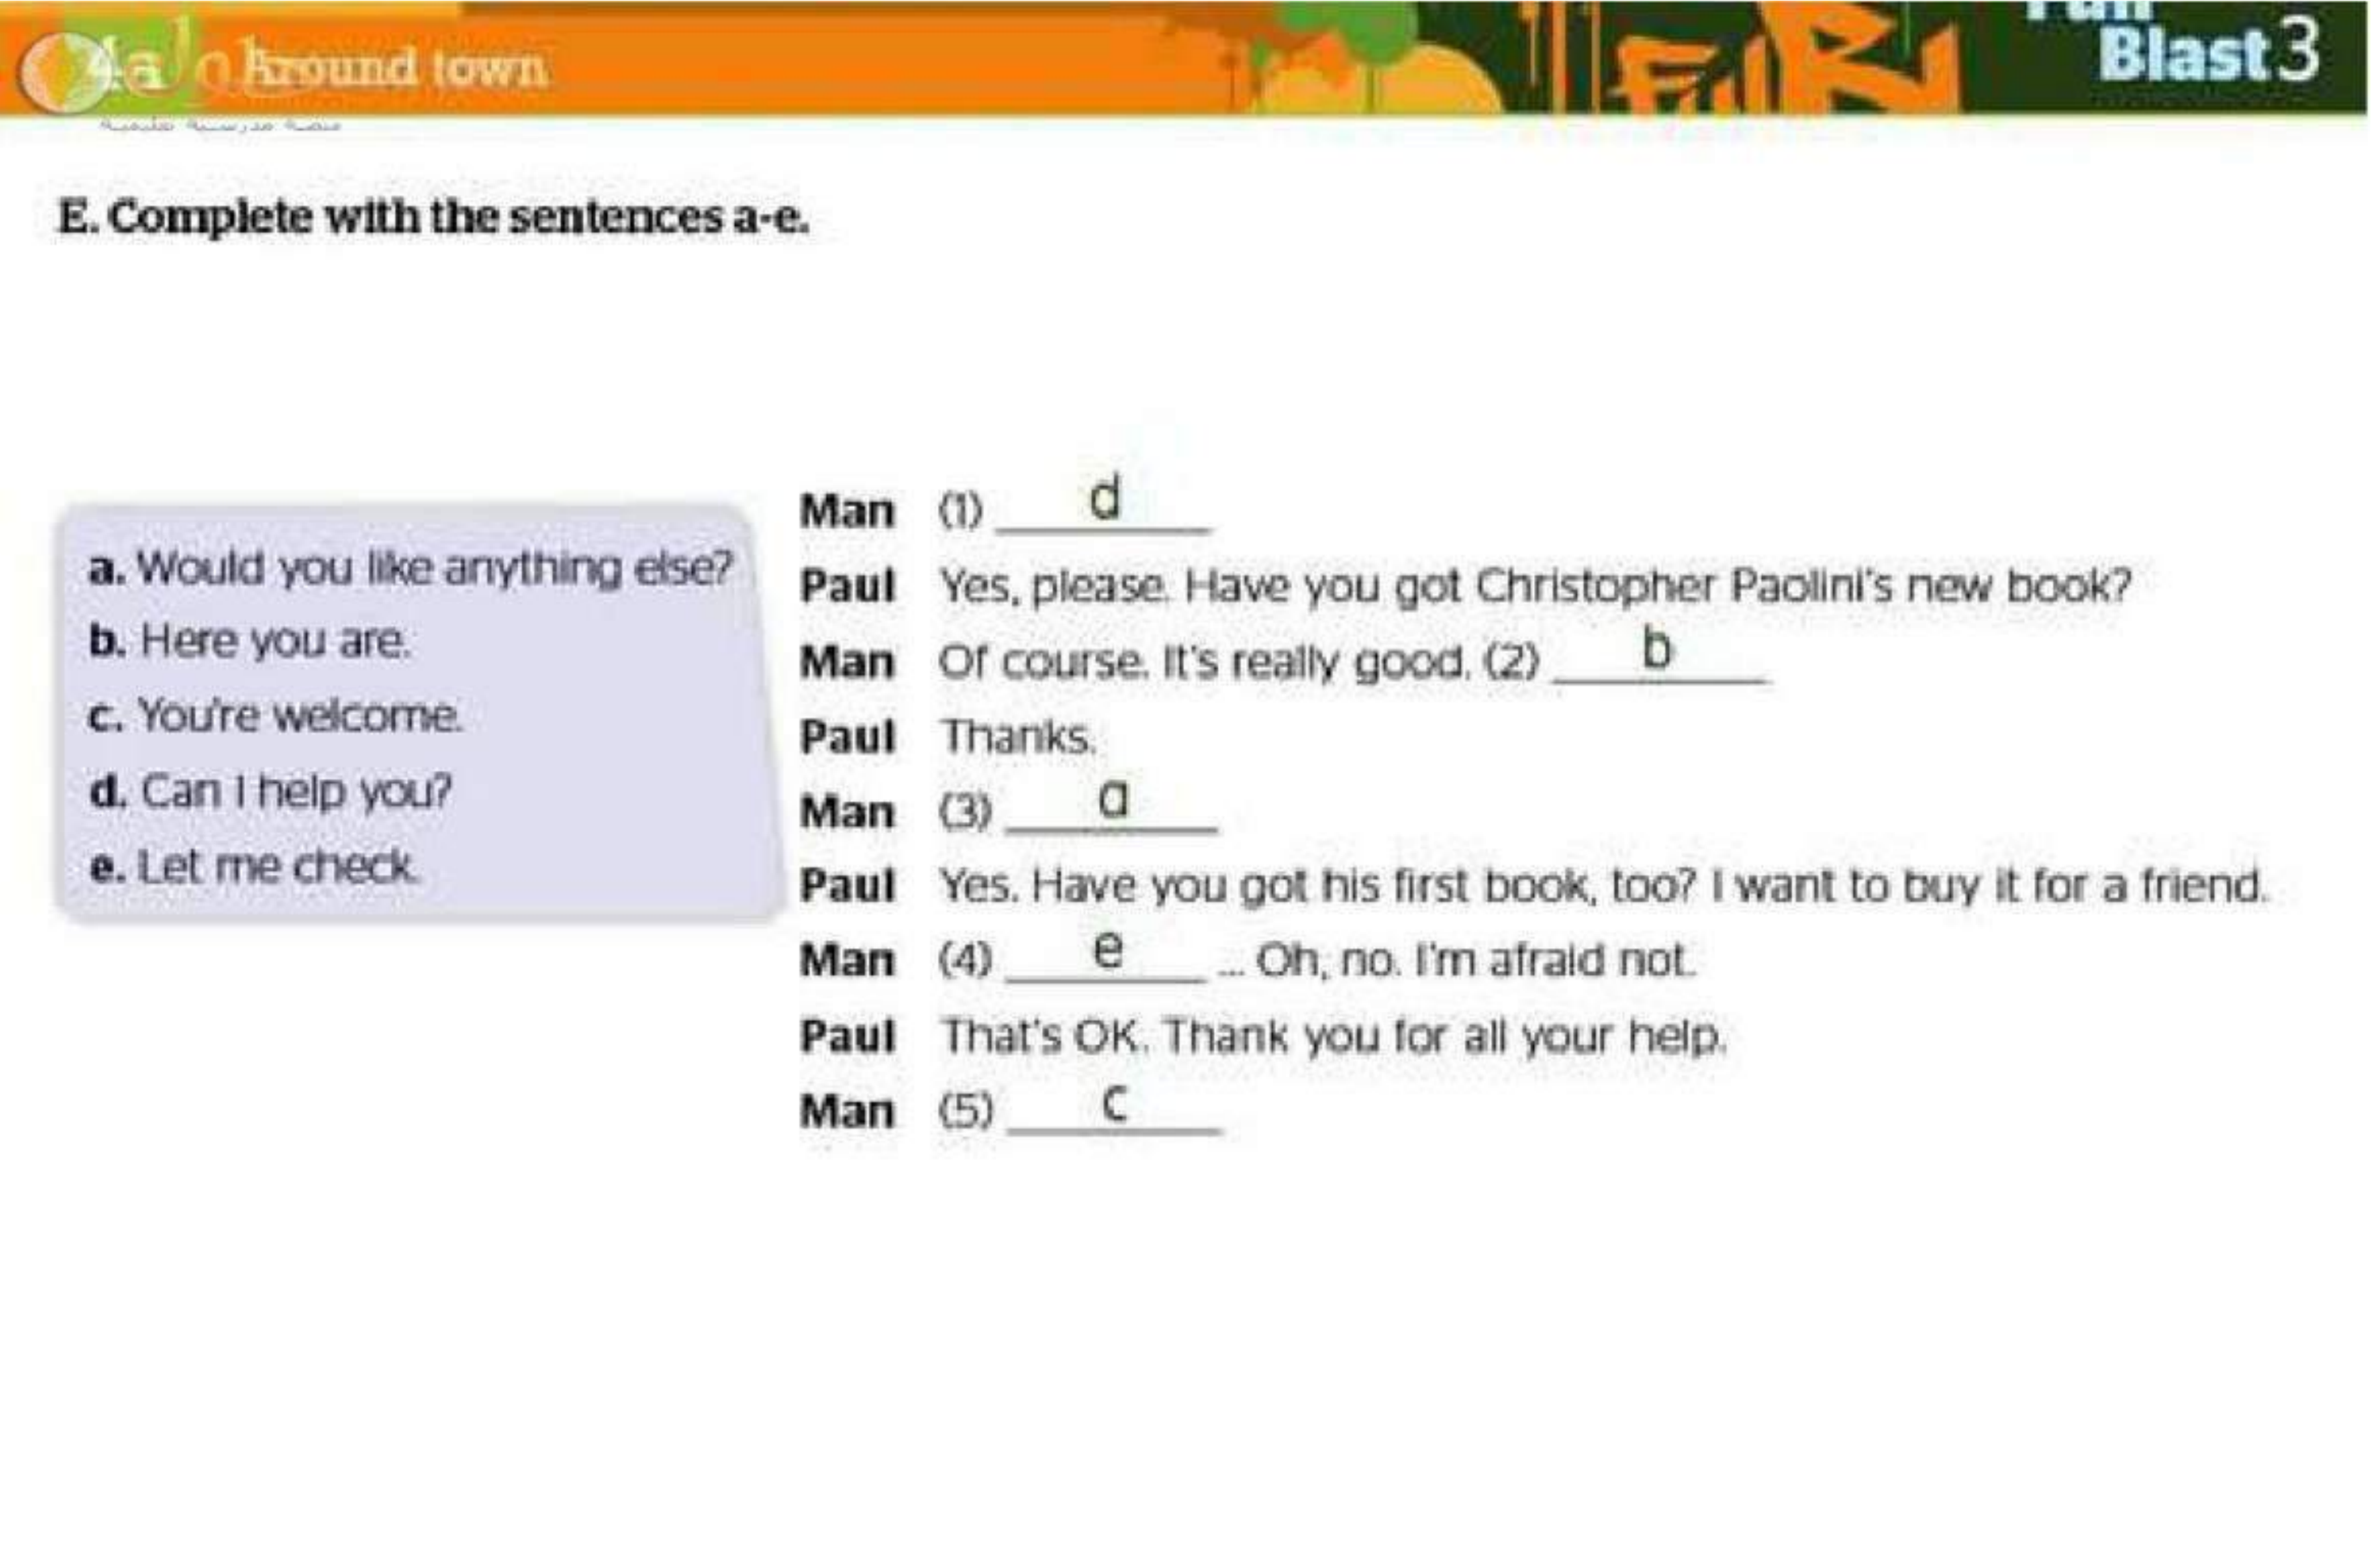 4a Around town
Fun
Blast 3
E. Complete with the sentences a-e.
a. Would you like anything else?
b. Here you are.
c. You're welcome.
d. Can I help you?
e. Let me check.
Man (1) d
Paul Yes, please. Have you got Christopher Paolini's new book?
Man Of course. It's really good. (2) b
Paul Thanks.
Man (3) a
Paul Yes. Have you got his first book, too? I want to buy it for a friend.
Man (4) e ... Oh, no. I'm afraid not.
Paul That's OK. Thank you for all your help.
Man (5) c